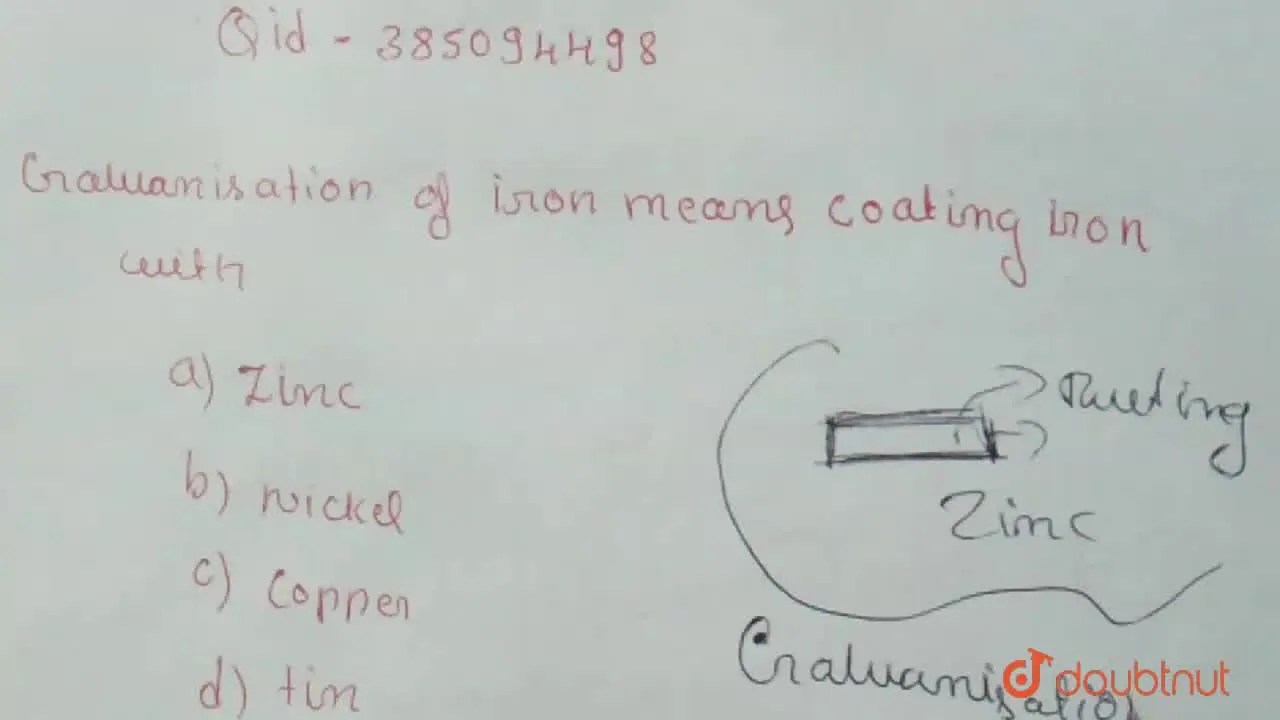 Qid - 385094498
Galvanisation of iron means coating iron
with
a) Zinc
b) Nickel
c) Copper
d) tin
Rusting
Zinc
Galvanisation
doubtnut